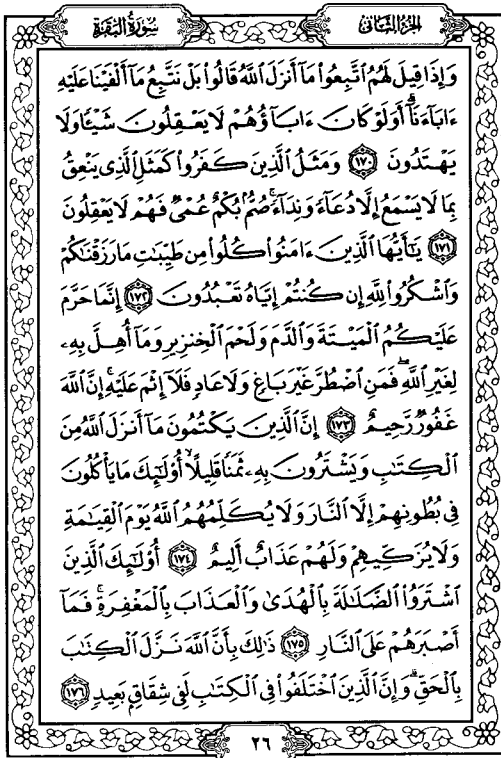 سورة البقرة
الجزء الثاني
وَإِذَا قِيلَ لَهُمُ ٱتَّبِعُوا۟ مَآ أَنزَلَ ٱللَّهُ قَالُوا۟ بَلْ نَتَّبِعُ مَآ أَلْفَيْنَا عَلَيْهِ
ءَابَآءَنَآ ۗ أَوَلَوْ كَانَ ءَابَآؤُهُمْ لَا يَعْقِلُونَ شَيْـًٔا وَلَا
يَهْتَدُونَ ١٧٠ وَمَثَلُ ٱلَّذِينَ كَفَرُوا۟ كَمَثَلِ ٱلَّذِى يَنْعِقُ
بِمَا لَا يَسْمَعُ إِلَّا دُعَآءً وَنِدَآءً ۚ صُمٌّۢ بُكْمٌ عُمْىٌ فَهُمْ لَا يَعْقِلُونَ
١٧١ يَـٰٓأَيُّهَا ٱلَّذِينَ ءَامَنُوا۟ كُلُوا۟ مِن طَيِّبَـٰتِ مَا رَزَقْنَـٰكُمْ
وَٱشْكُرُوا۟ لِلَّهِ إِن كُنتُمْ إِيَّاهُ تَعْبُدُونَ ١٧٢ إِنَّمَا حَرَّمَ
عَلَيْكُمُ ٱلْمَيْتَةَ وَٱلدَّمَ وَلَحْمَ ٱلْخِنزِيرِ وَمَآ أُهِلَّ بِهِۦ
لِغَيْرِ ٱللَّهِ ۖ فَمَنِ ٱضْطُرَّ غَيْرَ بَاغٍ وَلَا عَادٍ فَلَآ إِثْمَ عَلَيْهِ ۚ إِنَّ ٱللَّهَ
غَفُورٌ رَّحِيمٌ ١٧٣ إِنَّ ٱلَّذِينَ يَكْتُمُونَ مَآ أَنزَلَ ٱللَّهُ مِنَ
ٱلْكِتَـٰبِ وَيَشْتَرُونَ بِهِۦ ثَمَنًا قَلِيلًا ۙ أُو۟لَـٰٓئِكَ مَا يَأْكُلُونَ
فِى بُطُونِهِمْ إِلَّا ٱلنَّارَ وَلَا يُكَلِّمُهُمُ ٱللَّهُ يَوْمَ ٱلْقِيَـٰمَةِ
وَلَا يُزَكِّيهِمْ وَلَهُمْ عَذَابٌ أَلِيمٌ ١٧٤ أُو۟لَـٰٓئِكَ ٱلَّذِينَ
ٱشْتَرَوُا۟ ٱلضَّلَـٰلَةَ بِٱلْهُدَىٰ وَٱلْعَذَابَ بِٱلْمَغْفِرَةِ ۚ فَمَآ
أَصْبَرَهُمْ عَلَى ٱلنَّارِ ١٧٥ ذَٰلِكَ بِأَنَّ ٱللَّهَ نَزَّلَ ٱلْكِتَـٰبَ
بِٱلْحَقِّ ۗ وَإِنَّ ٱلَّذِينَ ٱخْتَلَفُوا۟ فِى ٱلْكِتَـٰبِ لَفِى شِقَاقٍۭ بَعِيدٍ ١٧٦
٢٦